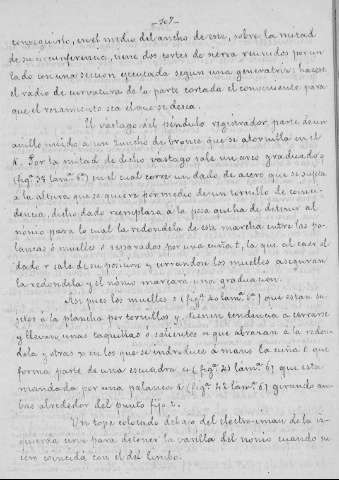 -107-
conseguirlo, en el medio del ancho de este, sobre la mitad
de su circunferencia, tiene dos cortes de sierra reunidos por un
lado con una seccion ejecutada segun una generatriz: hacese
el radio de curvatura de la parte cortada el conveniente para
que el rozamiento sea el que se desea.
El vastago del péndulo registrador parte de un
anillo unido a un zuncho de bronce que se atornilla en el
N. Por la mitad de dicho vastago sale un arco graduado q
(figª 39 lamª 6ª) en el cual corre un dado de acero que se sujeta
a la altura que se quiere por medio de un tornillo de coinci-
dencia, dicho dado reemplaza a la pesa que ha de detener al
nónio para lo cual la redondela de esta marcha entre las pa-
lancas ó muelles s separados por una cuña t, la que al caer el
dado r sale de su posicion y cerrandose los muelles aseguran
la redondela y el nónio marcará una graduación.
Asi pues los muelles s (figª 40 lamª 6ª) que estan su-
jetos á la plancha por tornillos y, tienen tendencia a cerrarse
y llevan unas taquillas ó salientes que abrazan á la redon-
dela y otras x en los que se introduce a mano la cuña t que
forma parte de una escuadra u (figª 41 lamª 6) que esta
mandada por una palanca (figª 42 lamª 6) girando am-
bas alrededor del punto fijo z.
Un tope colocado debajo del electro-iman de la iz-
quierda sirve para detener la varilla del nonio cuando su
cero coincida con el del limbo.